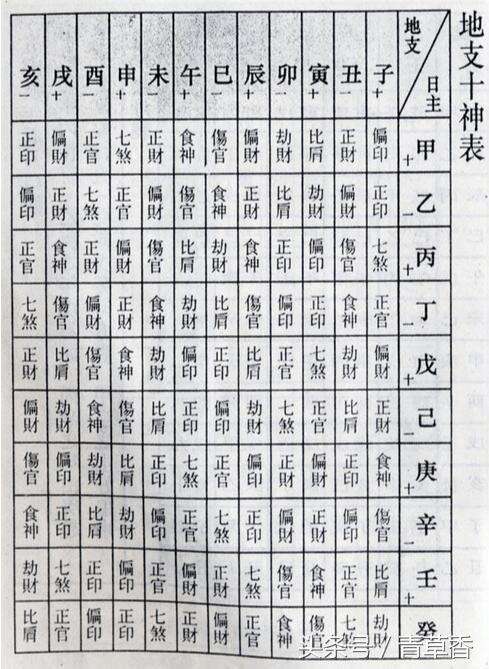 地支十神表
地支 日主 子十 丑一 寅十 卯一 辰十 巳一 午十 未一 申十 酉一 戌十 亥一
甲十 偏印 正財 比肩 劫財 偏財 傷官 食神 正財 七煞 正官 偏財 正印
乙一 正印 偏財 劫財 比肩 正財 食神 傷官 偏財 正官 七煞 正財 偏印
丙十 七煞 傷官 偏印 正印 食神 劫財 比肩 傷官 偏財 正財 食神 正官
丁一 正官 食神 正印 偏印 傷官 比肩 劫財 食神 正財 偏財 傷官 七煞
戊十 偏財 劫財 七煞 正官 比肩 正印 偏印 劫財 食神 傷官 比肩 正財
己一 正財 比肩 正官 七煞 劫財 偏印 正印 比肩 傷官 食神 劫財 偏財
庚十 食神 正印 偏財 正財 偏印 正官 七煞 正印 比肩 劫財 偏印 傷官
辛一 傷官 偏印 正財 偏財 正印 七煞 正官 偏印 劫財 比肩 正印 食神
壬十 比肩 正官 食神 傷官 七煞 正財 偏財 正官 偏印 正印 七煞 劫財
癸 劫財 七煞 傷官 食神 正官 偏財 正財 七煞 正印 偏印 正官 比肩
头条号/青草香